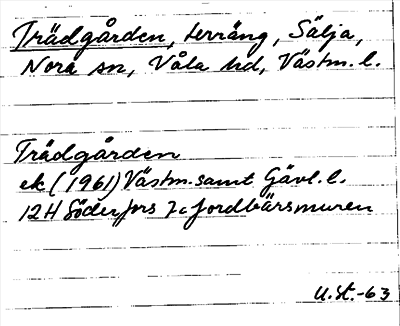 Trädgården, terräng, Sälja,
Nora sn, Våla hd, Västm. l.
Trädgården
ek (1961) Västm. samt Gävl. l.
12H Söderfors 7c Jordbärsmuren
U.St.-63